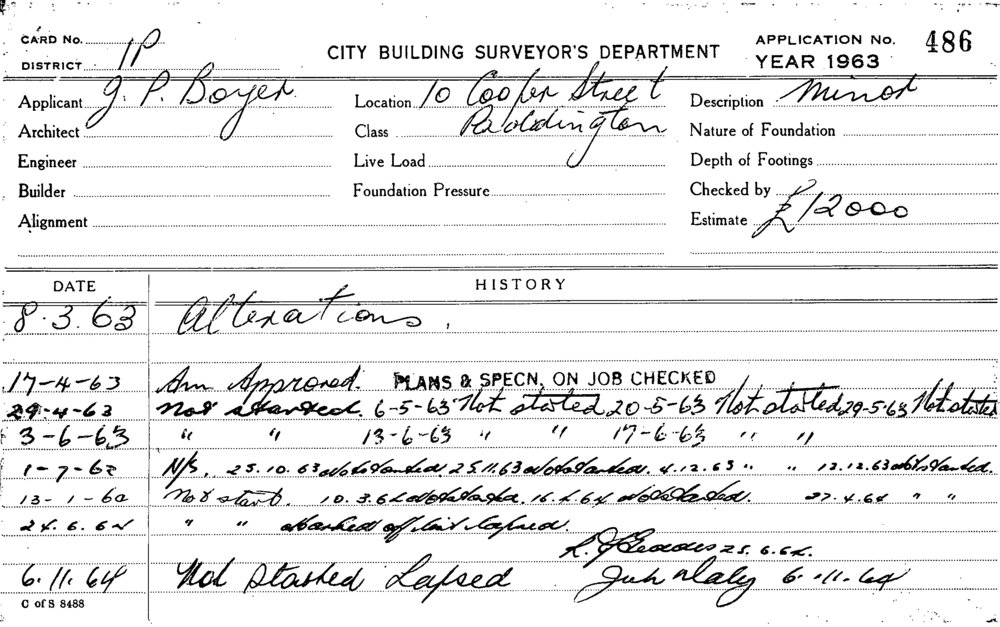 CARD No. 1P
DISTRICT
CITY BUILDING SURVEYOR'S DEPARTMENT
APPLICATION No. 486
YEAR 1963
Applicant J. P. Boyer
Location 10 Cooper Street
Paddington
Description Minor
Architect
Class
Nature of Foundation
Engineer
Live Load
Depth of Footings
Builder
Foundation Pressure
Checked by
Alignment
Estimate £12000
DATE HISTORY
8.3.63 Alterations.
17-4-63 Approved. PLANS & SPECN, ON JOB CHECKED
29-4-63 Not started. 6-5-63 Not started 20-5-63 Not started 29-5-63 Not started
3-6-63 " " 13-6-63 " " 17-6-63 " "
1-7-63 N/S. 25.10.63 Not started. 25.11.63 Not started. 4.12.63 " " 12.12.63 Not started.
13-1-64 Not start. 10.3.64 Not started. 16.4.64 Not started. 27.4.64 " "
24.6.64 " " Marked off list lapsed.
25.6.64.
6.11.64 Not started Lapsed Daly 6.11.64
C of S 8488